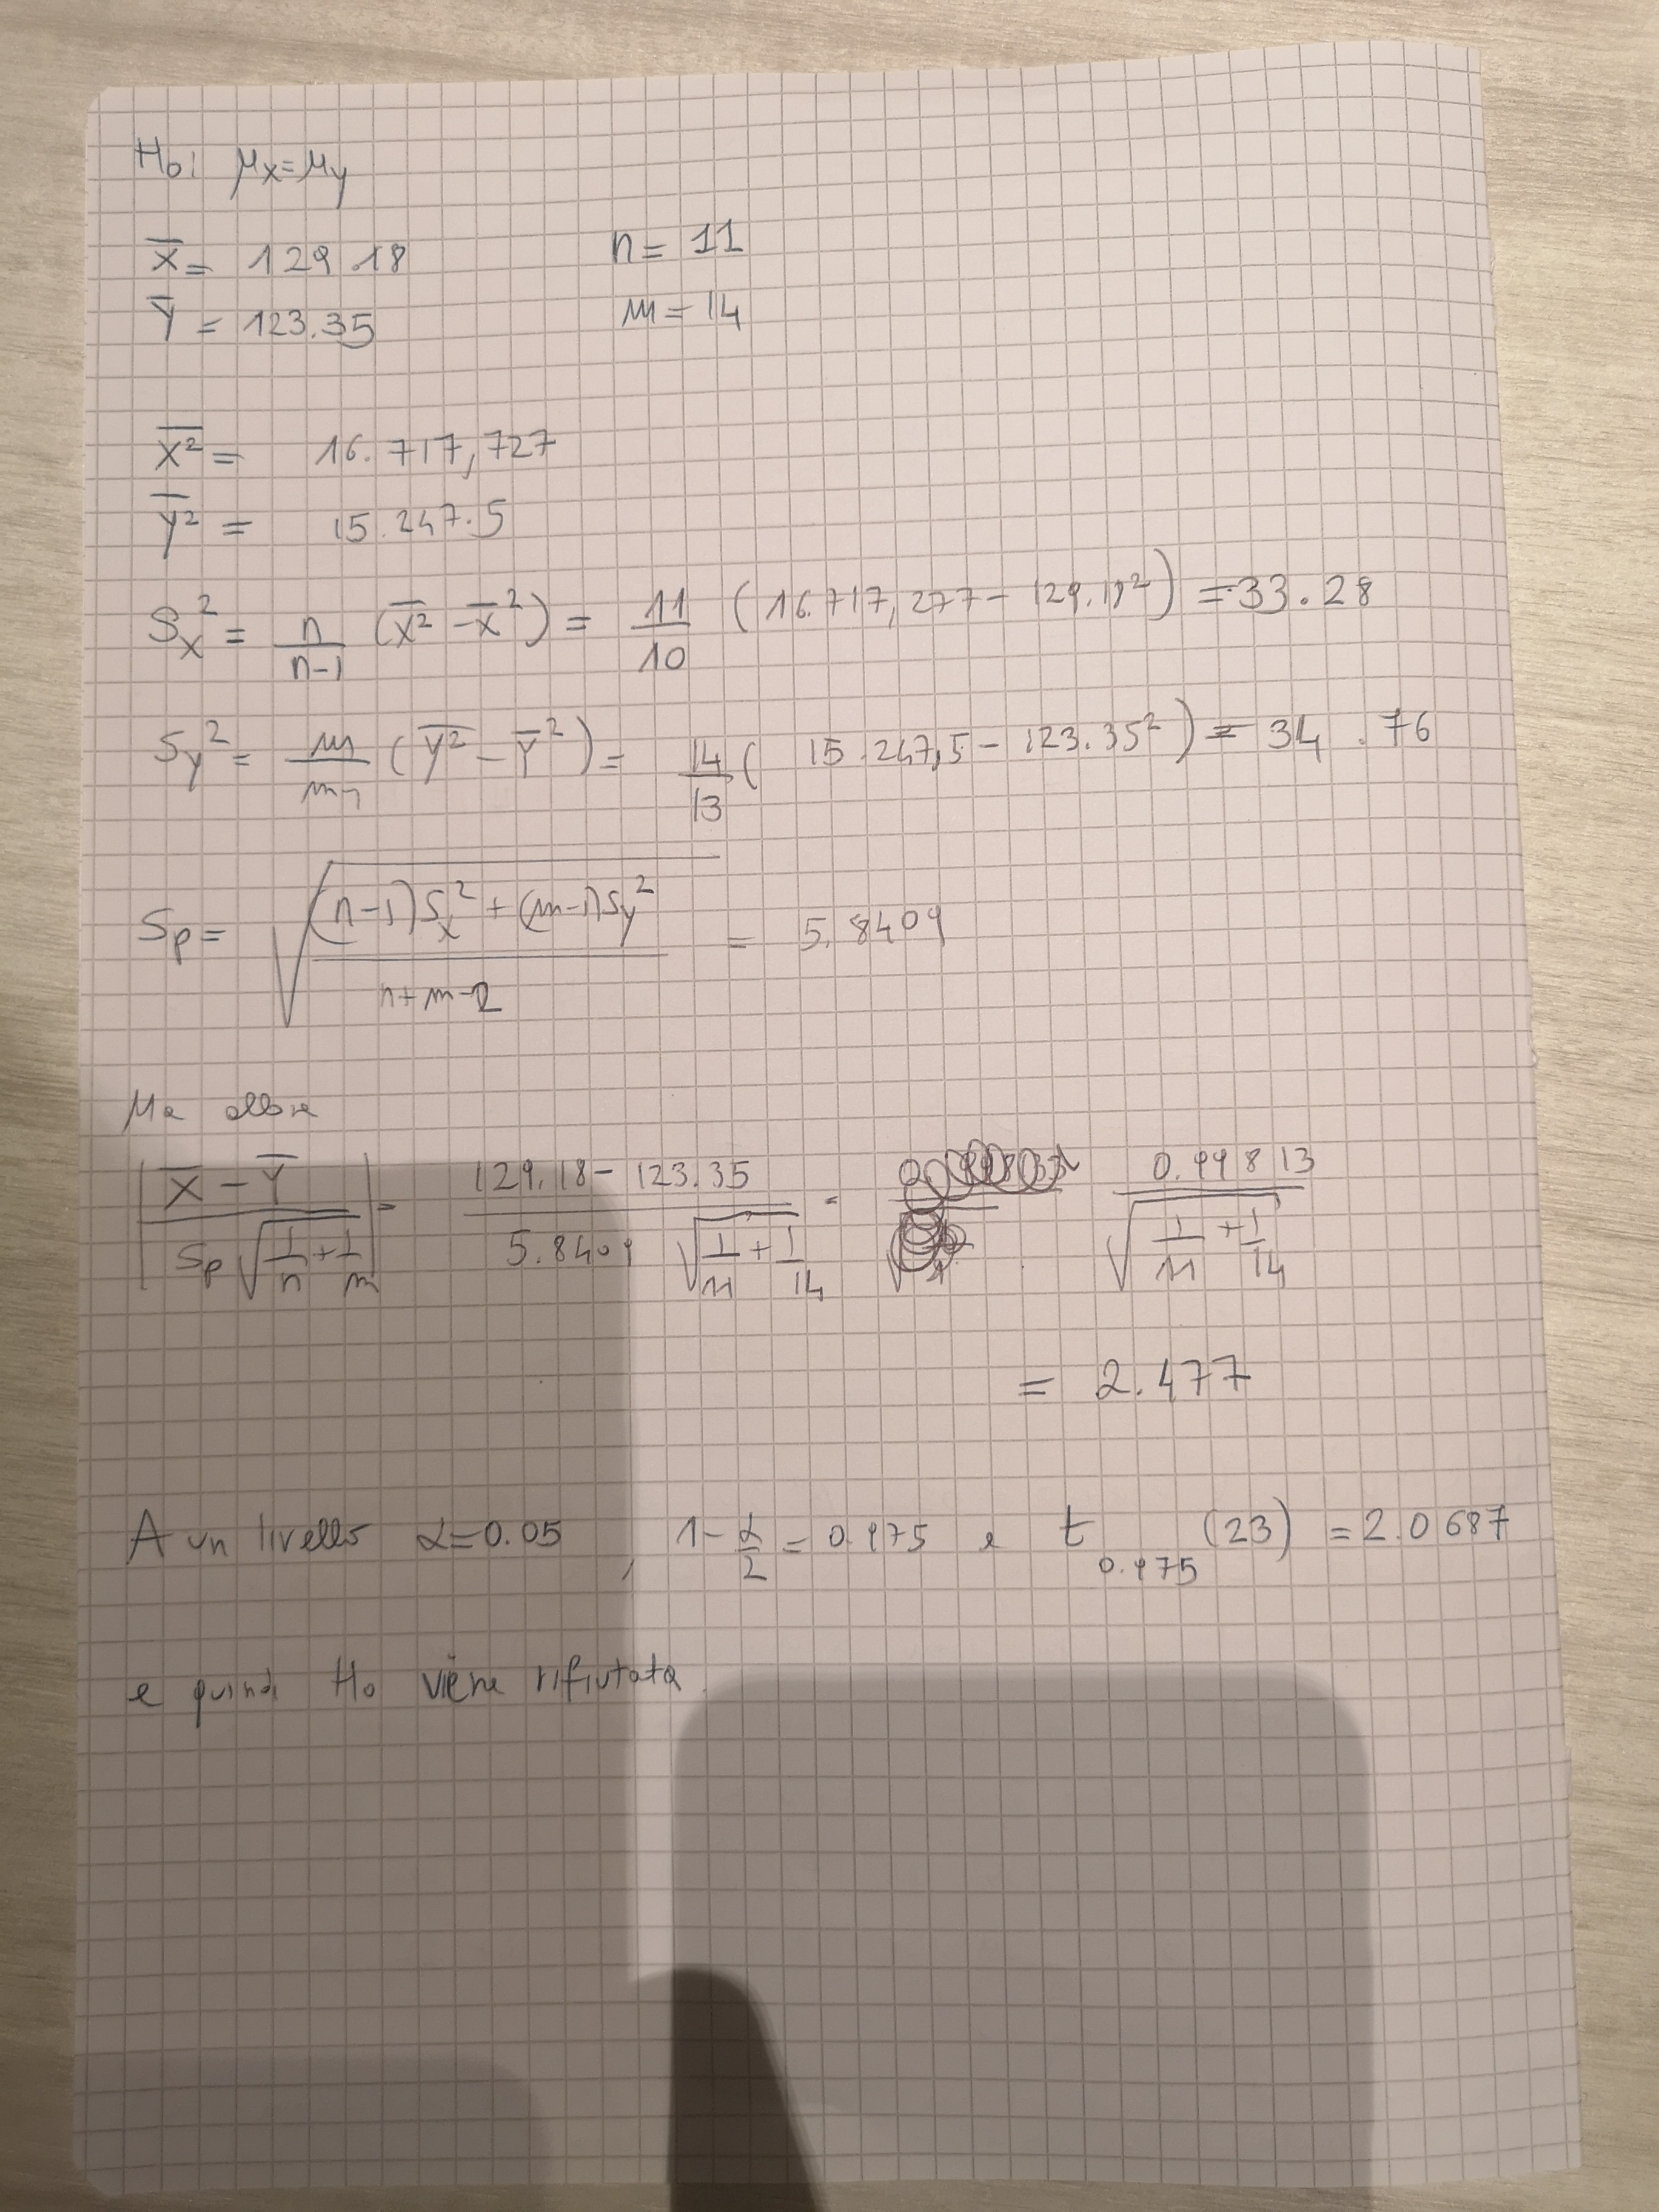 H₀: μx = μy
X̄ = 129.18 n = 11
Ȳ = 123.35 m = 14
X̄² = 16.717,727
Ȳ² = 15.247.5
Sx² = n/(n-1) (X̄² - X̄²) = 11/10 (16.717,277 - 129.18²) = 33.28
Sy² = m/(m-1) (Ȳ² - Ȳ²) = 14/13 ( 15.247,5 - 123.35²) = 34.76
Sp = √(((n-1)Sx² + (m-1)Sy²)/(n+m-2)) = 5.8409
Ma allora
|(X̄ - Ȳ)/(Sp √(1/n + 1/m))| = (129.18 - 123.35)/(5.8409 √(1/11 + 1/14)) = 0.99813/√(1/11 + 1/14)
= 2.477
A un livello α=0.05, 1-α/2 = 0.975 e t0.975 (23) = 2.0687
e quindi H₀ viene rifiutata.